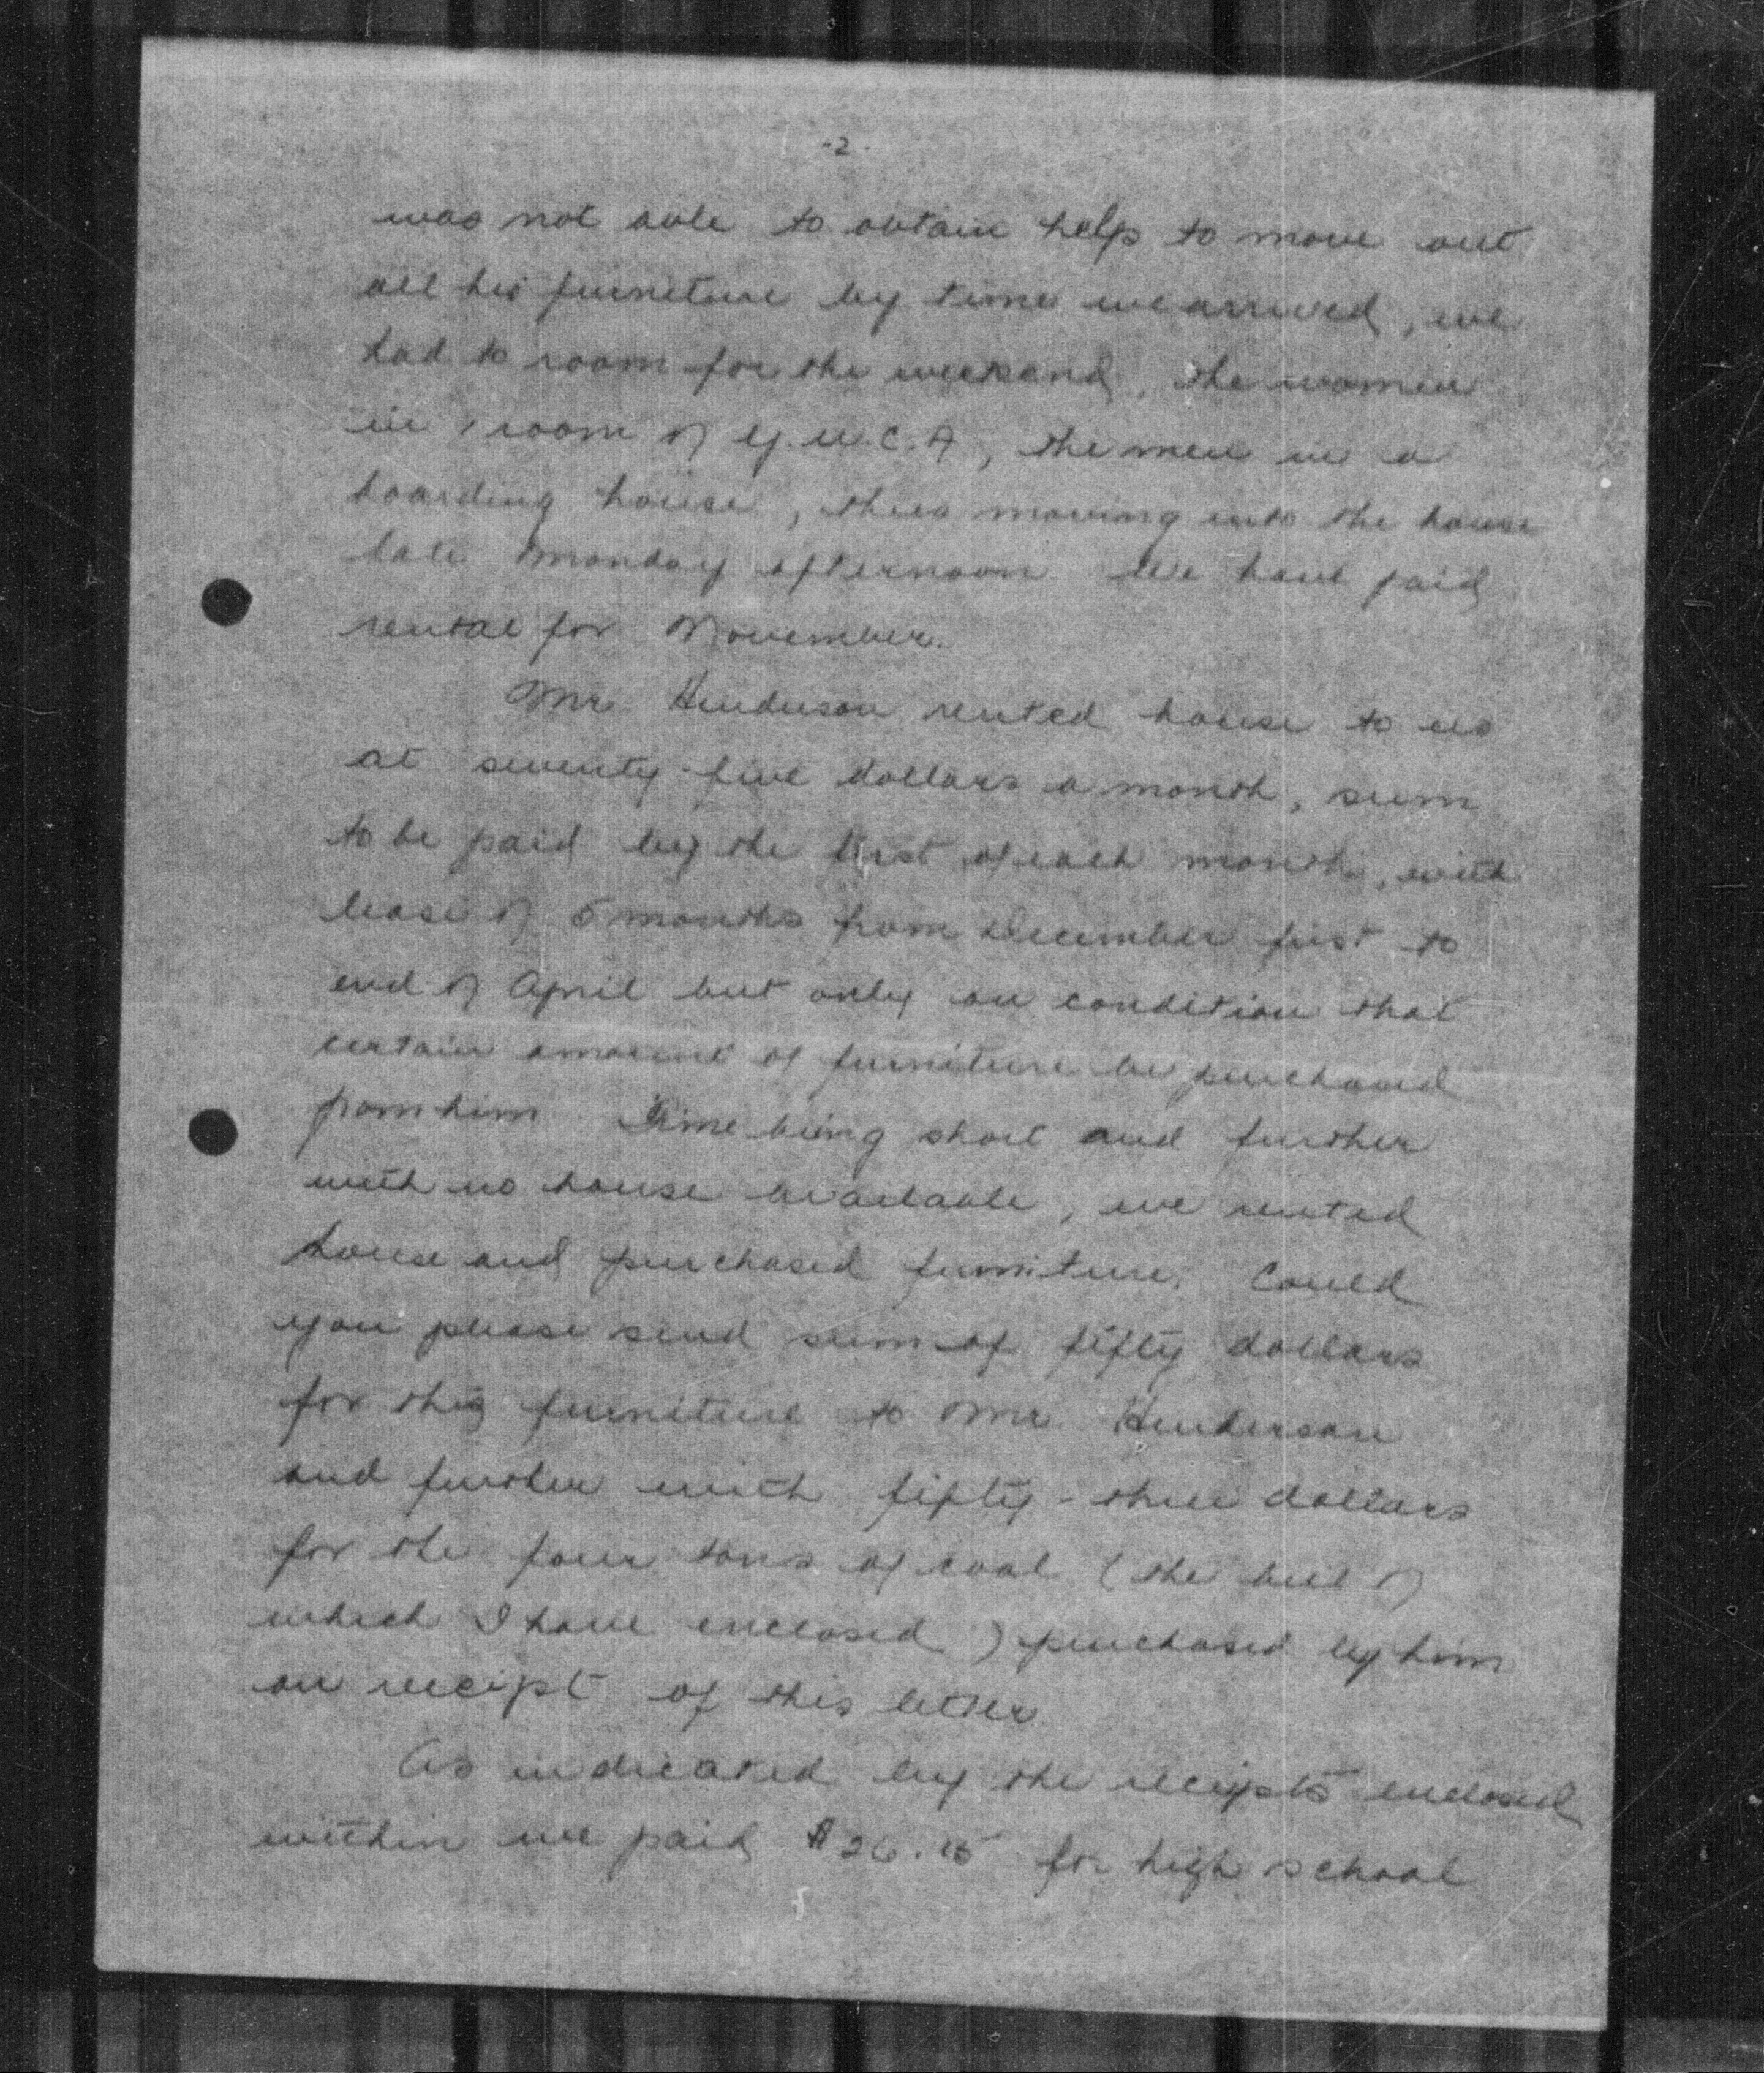 -2-
was not able to obtain help to move out
all his furniture by time we arrived, we
had to room for the weekend, the women
in 1 room of Y.W.C.A, the men in a
boarding house, thus moving into the house
late Monday afternoon. We have paid
rental for November.
Mr. Henderson rented house to us
at seventy-five dollars a month, sum
to be paid by the first of each month, with
lease of 5 months from December first to
end of April but only on condition that
certain amount of furniture be purchased
from him. Time being short and further
with no house available, we rented
house and purchased furniture. Could
you please send sum of fifty dollars
for this furniture to Mr. Henderson
and further with fifty-three dollars
for the four tons of coal (the bill of
which I have enclosed) purchased by him
on receipt of this letter.
As indicated by the receipts enclosed
within we paid for high school